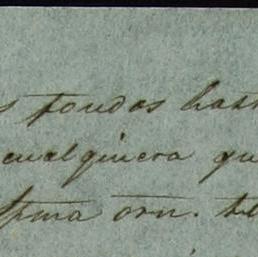 s fondos hast
cualquiera qu
spma orn. te